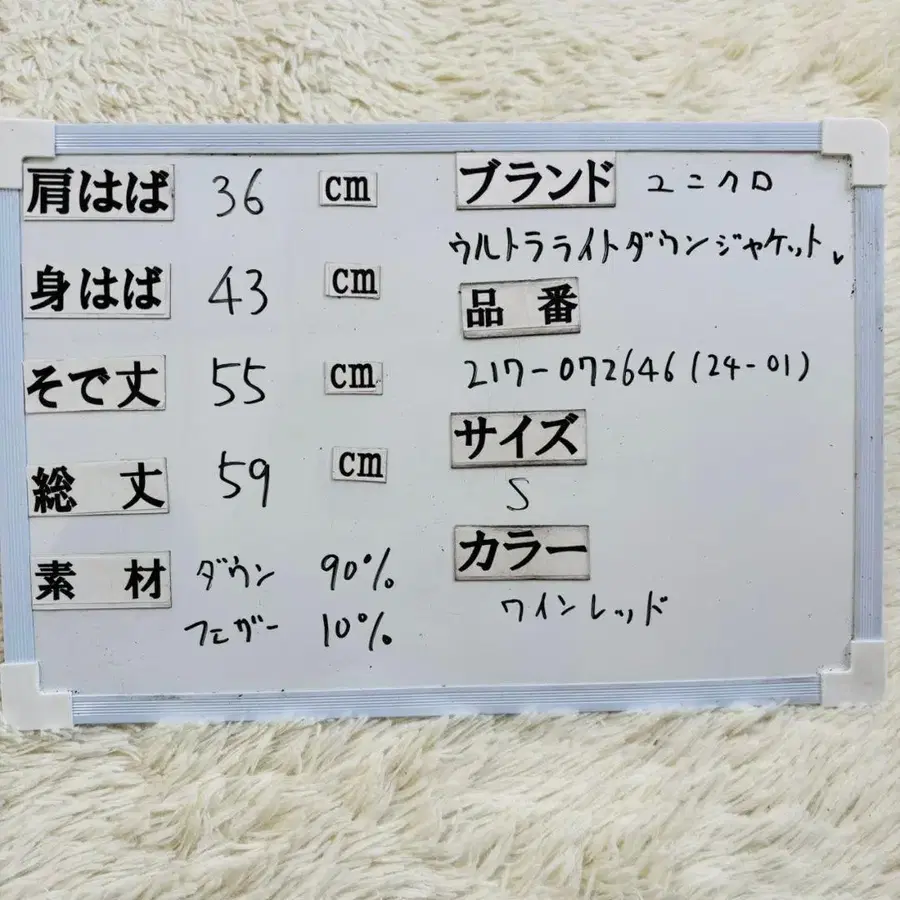 肩はば 36 cm
身はば 43 cm
そで丈 55 cm
総丈 59 cm
素材 ダウン 90%
フェザー 10%
ブランド ユニクロ
ウルトラライトダウンジャケット、
品番
217-072646(24-01)
サイズ
S
カラー
ワインレッド